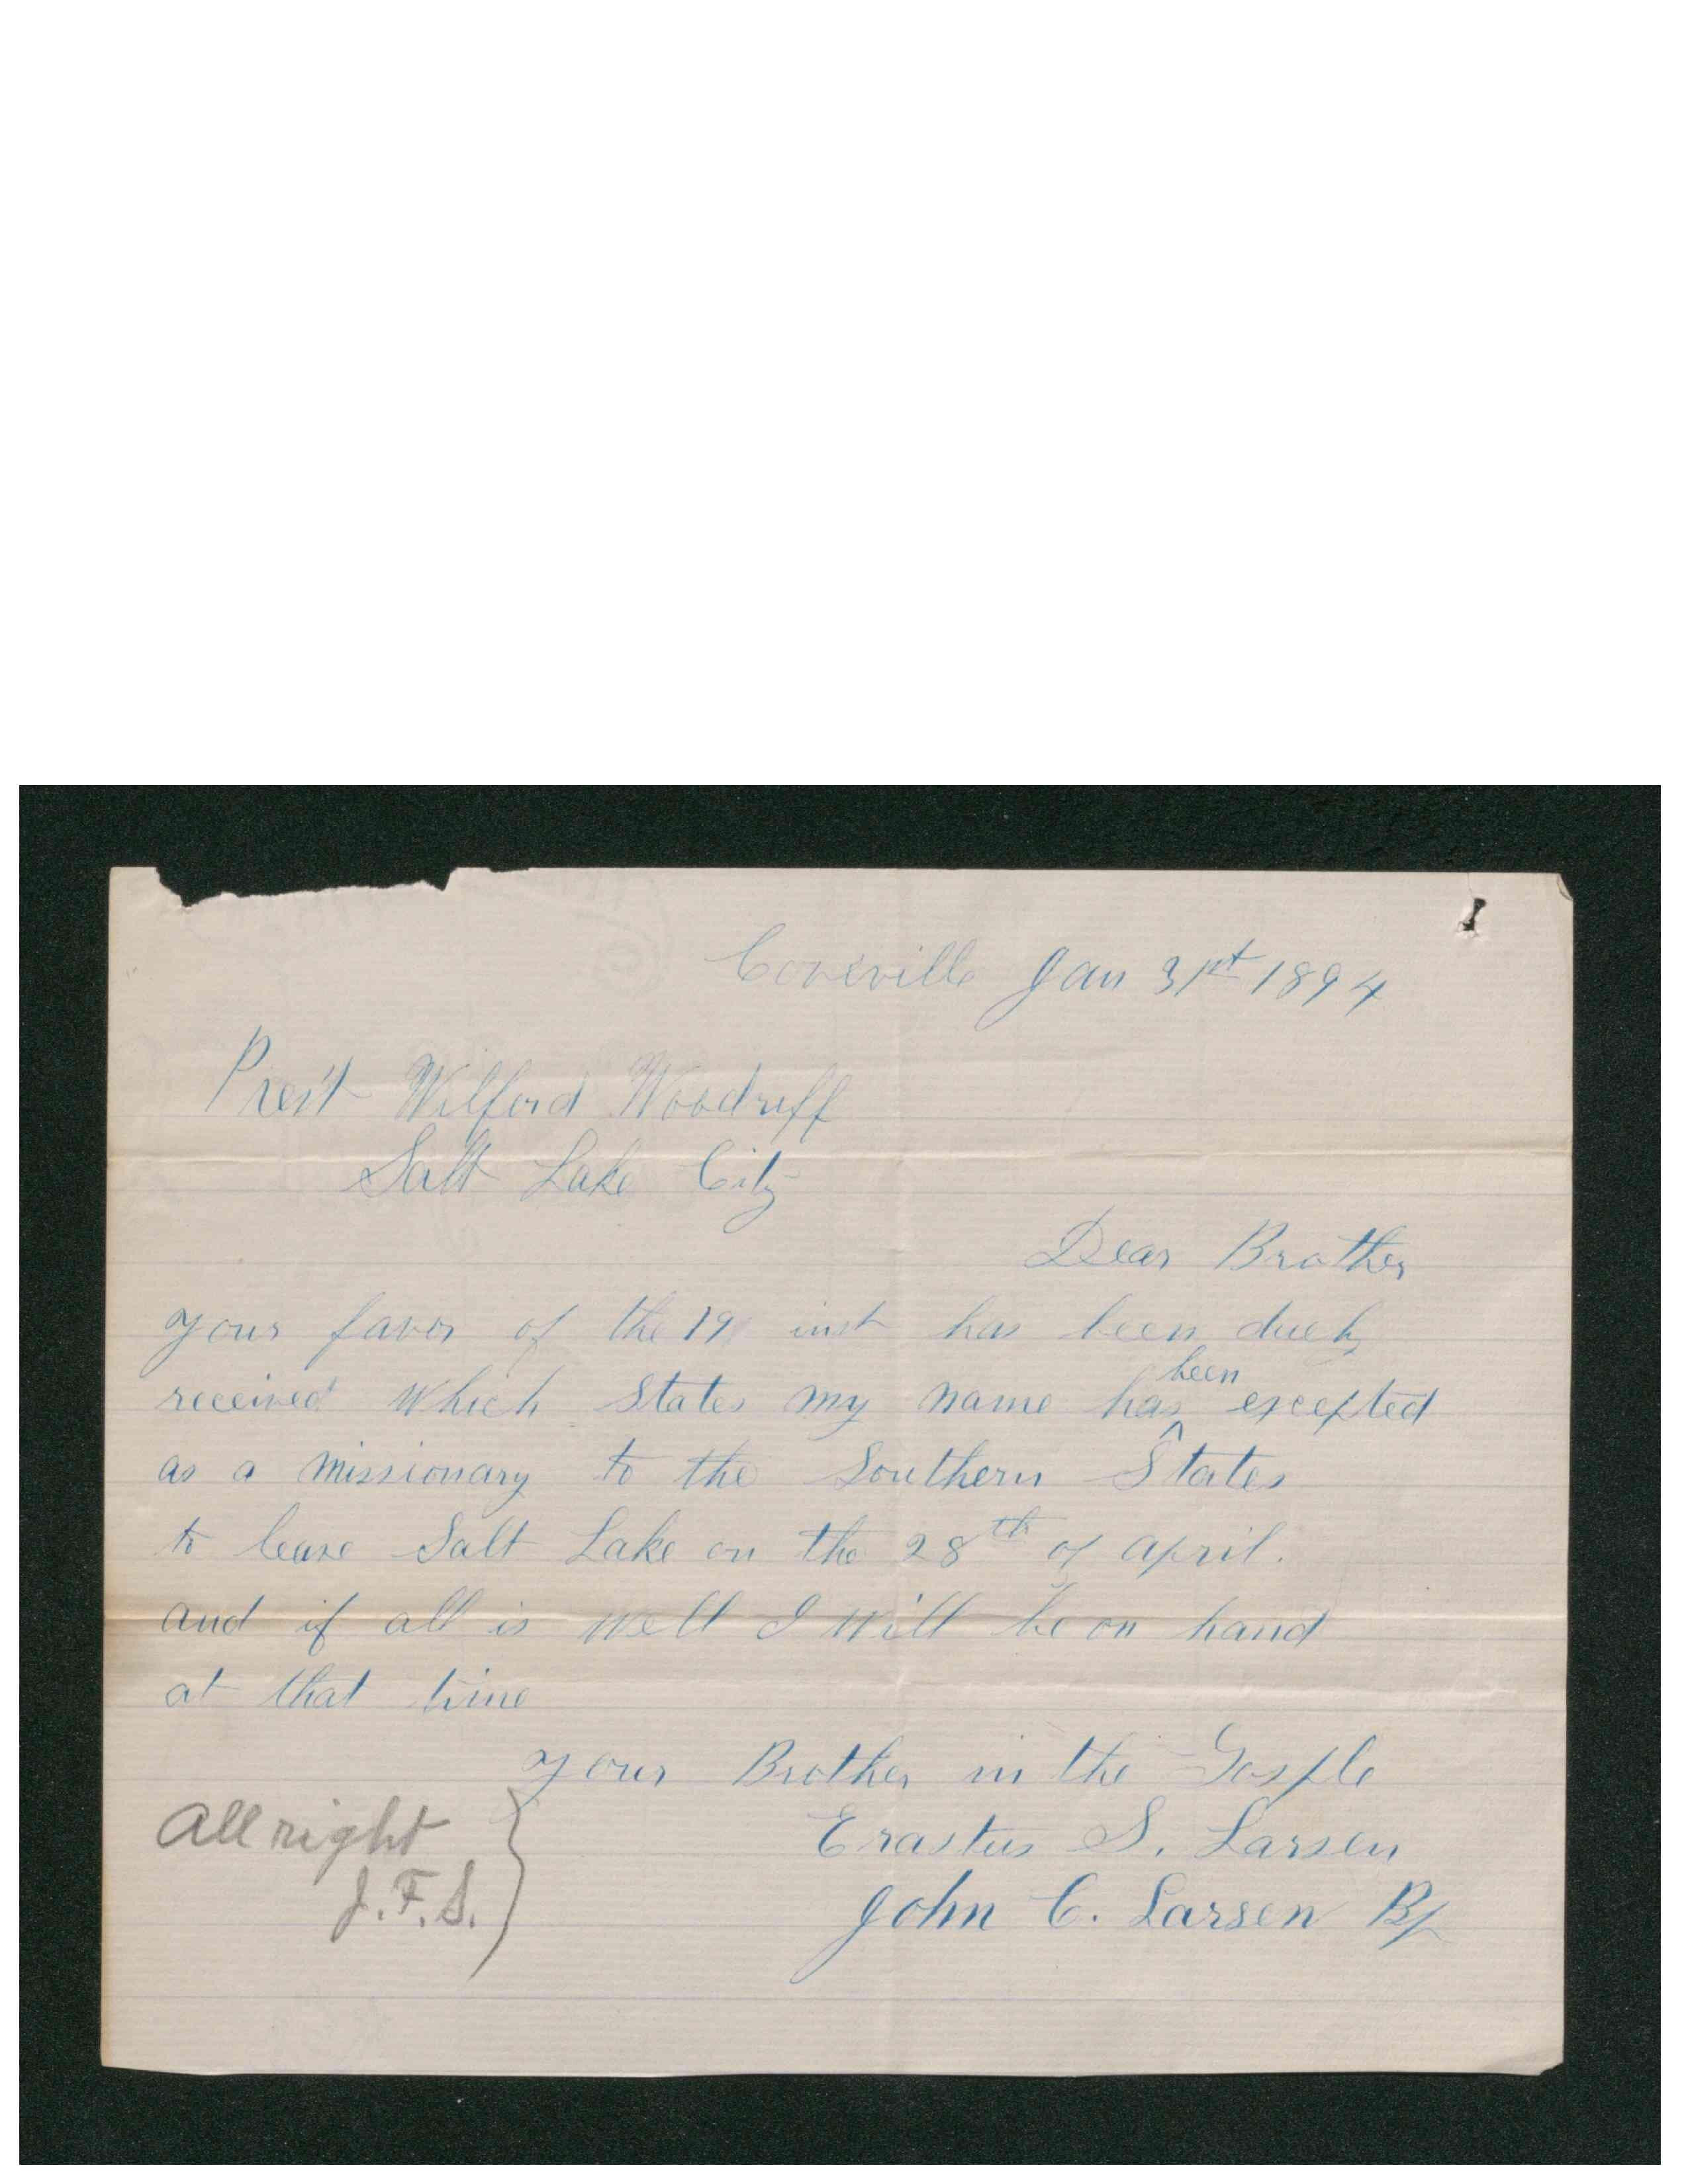 Coveville Jan 31st 1894
Pres't Wilford Woodruff
Salt Lake City
Dear Brother
your favor of the 19 inst has been duely
received which states my name has been excepted
as a missionary to the Southern States
to leave Salt Lake on the 28th of april.
and if all is well I will be on hand
at that time
your Brother in the Gosple
Erastus S. Larsen
John C. Larsen Bp
All right
J.F.S.